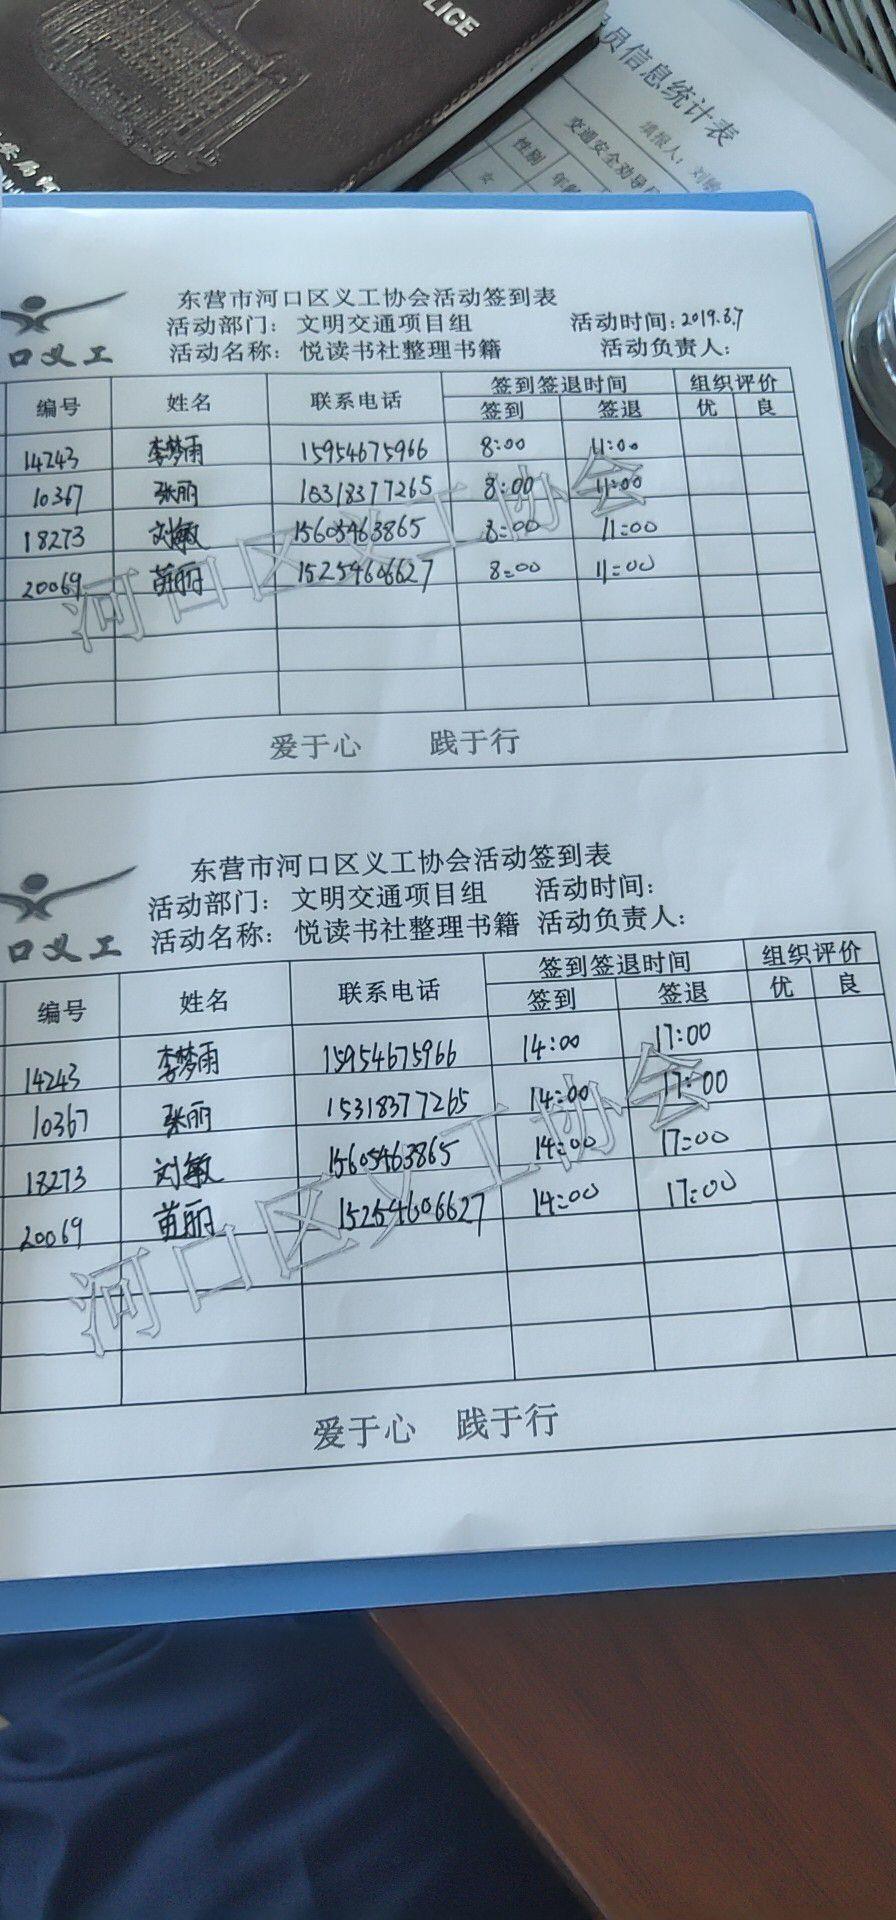 LICE
安局河
员信息统计表
填报人：刘敏
交通安全劝导
性别 年龄
女
东营市河口区义工协会活动签到表
活动部门： 文明交通项目组 活动时间：2019.3.7
口义工 活动名称： 悦读书社整理书籍 活动负责人：
编号 姓名 联系电话 签到签退时间 组织评价
签到 签退 优 良
14243 李梦雨 15954675966 8:00 11:00
10367 张丽 15318377265 8:00 11:00
18273 刘敏 15605463865 8:00 11:00
20069 苗丽 15254606627 8:00 11:00
河口区义工协会
爱于心 践于行
东营市河口区义工协会活动签到表
活动部门： 文明交通项目组 活动时间：
口义工 活动名称： 悦读书社整理书籍 活动负责人：
编号 姓名 联系电话 签到签退时间 组织评价
签到 签退 优 良
14243 李梦雨 15954675966 14:00 17:00
10367 张丽 15318377265 14:00 17:00
18273 刘敏 15605463865 14:00 17:00
20069 苗丽 15254606627 14:00 17:00
河口区义工协会
爱于心 践于行